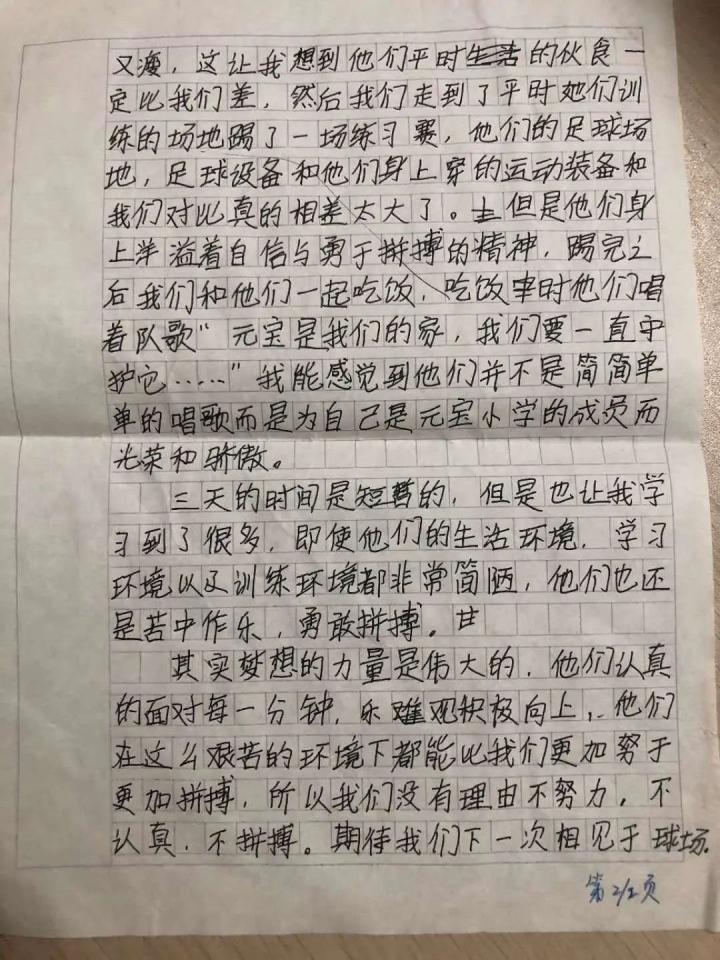 又瘦，这让我想到他们平时生活的伙食一
定比我们差，然后我们走到了平时她们训
练的场地踢了一场练习赛，他们的足球场
地，足球设备和他们身上穿的运动装备和
我们对比真的相差太大了。但是他们身
上洋溢着自信与勇于拼搏的精神，踢完之
后我们和他们一起吃饭，吃饭时他们唱
着队歌“元宝是我们的家，我们要一直守
护它……”我能感觉到他们并不是简简单
单的唱歌而是为自己是元宝小学的成员而
光荣和骄傲。
三天的时间是短暂的，但是也让我学
习到了很多，即使他们的生活环境，学习
环境以及训练环境都非常简陋，他们也还
是苦中作乐，勇敢拼搏。
其实梦想的力量是伟大的，他们认真
的面对每一分钟，乐观积极向上，他们
在这么艰苦的环境下都能比我们更加努于
更加拼搏，所以我们没有理由不努力，不
认真，不拼搏。期待我们下一次相见于球场.
第2/2页